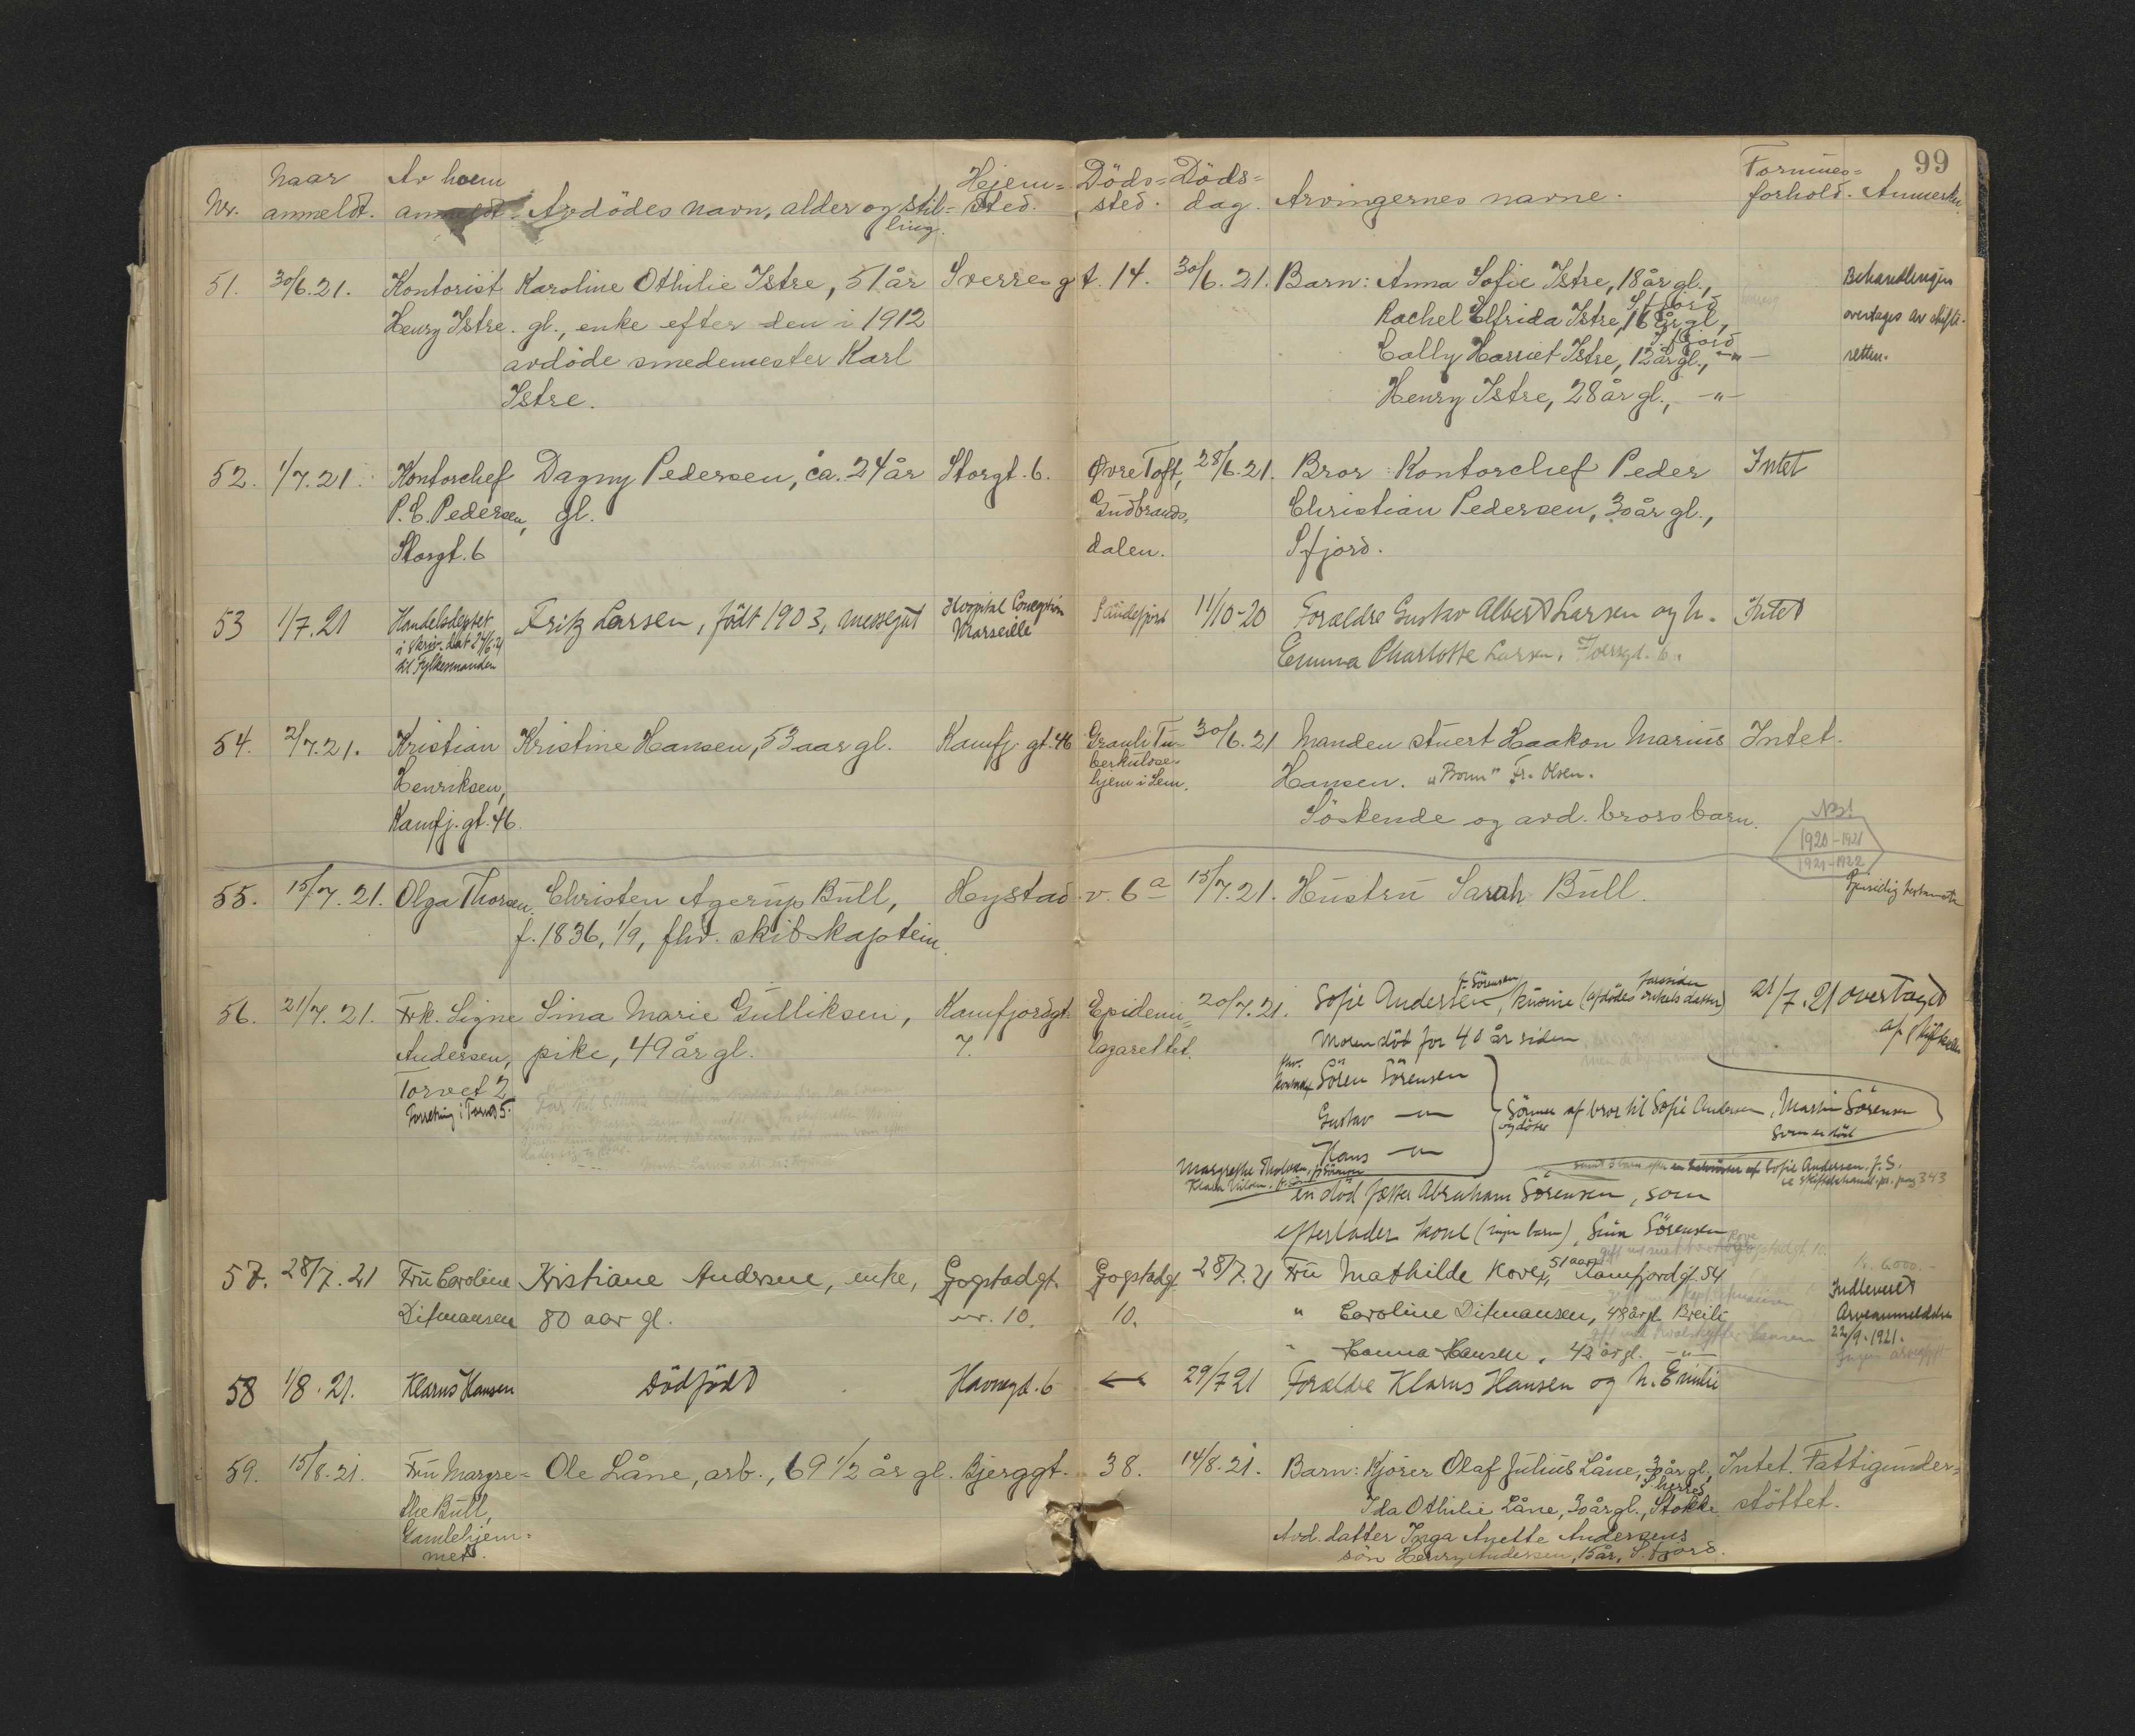 99
Naar Av hvem Hjem= Döds= Döds= Formues=
Nr. anmeldt. anmeldt. Avdödes navn, alder og stil= sted. sted. dag. Arvingernes navne. forhold. Anmerkn.
ling.
51. 30/6.21. Kontorist Karoline Othilie Istre, 51 år Sverresgt. 14. 30/6.21. Barn: Anna Sofie Istre, 18 år gl., Behandlingen
S.fjord
Henry Istre. gl., enke efter den i 1912 Rachel Elfrida Istre, 16 år gl., overtages av skifte-
S.fjord
avdöde smedemester Karl Cally Harriet Istre, 12 år gl., -"- retten.
Istre. Henry Istre, 28 år gl., -"-
52. 1/7.21. Kontorchef Dagny Pedersen, ca. 24 år Storgt. 6. Øvre Toft, 28/6.21. Bror: Kontorchef Peder Intet
P.C. Pedersen, gl. Gudbrands= Christian Pedersen, 30 år gl.,
Storgt. 6 dalen. Sfjord.
53 1/7.21 Handelsdeptet Fritz Larsen, födt 1903, messegut Hospital Conception Sandefjord 11/10-20 Forældre Gustav Albert Larsen og h. Intet
i skriv. dat 24/6.21 Marseille
til Fylkesmanden Emma Charlotte Larsen.
54. 2/7.21. Kristian Kristine Hansen, 53 aar gl. Kamfj. gt. 46 Grauli Tu= 30/6.21 Manden stuert Haakon Marius Intet.
Henriksen, berkulose= Hansen. "Bonn" Fr. Olsen.
hjem i Sem.
Kamfj. gt. 46. Söskende og avd. brors barn.
1920-1921
1921-1922
55. 15/7.21. Olga Thorsen. Christen Agerup Bull, Hystad v. 6a 15/7.21. Hustru Sarah Bull. Gjensidig testamente
f. 1836, 1/9, fhv. skibskaptein.
56. 21/7.21. Frk. Signe Lina Marie Gulliksen, Kamfjordgt. Epidemi= 20/7.21. Sofie Andersen, f. Sörensen kusine (afdödes onkels datter) farssiden 21/7.21 overtaget
af skifteretten
Andersen, pike, 49 år gl. 7. lazarettet. Moren död for 40 år siden
Torvet 2 Sören Sörensen
Forretning i Torvet 5. Gustav -"- Sönner af bror til Sofie Andersen, Martin Sörensen
og dötre som er död
Hans -"-
Margrethe f. Sörensen
Sofie Andersen, f. S.
343
en död fætter Abraham Sörensen, som
efterlader kone (ingen barn), Lina Sörensen
57. 28/7.21 Fru Caroline Kristiane Andersen, enke, Gogstadgt. Gogstadgt. 28/7.21 Fru Mathilde Kove, 51 aar, Kamfjordgt. 54. kr. 6000.-
Ditmansen 80 aar gl. nr. 10. 10. " Caroline Ditmansen, 48 år gl. Breili Indleveret
Arveanmeldelse
" Hanna Hansen, 42 år gl. -"- 22/9-1921.
Ingen arveafgift
58 1/8.21. Klarus Hansen Dödfödt Havnegt. 6 ← 29/7 21 Forældre Klarus Hansen og h. Emilie
59. 15/8.21. Fru Margre= Ole Låne, arb., 69 1/2 år gl. Bjerggt. 38. 14/8.21. Barn: Kjörer Olaf Julius Låne, 32 år gl., Intet. Fattigunder=
S.herred
the Bull, Ida Othilie Låne, 30 år gl., Stokke stöttet.
Gamlehjem= Avd. datter Inga Anette Andersens
met. sön Henry Andersen, 15 år, S.fjord.